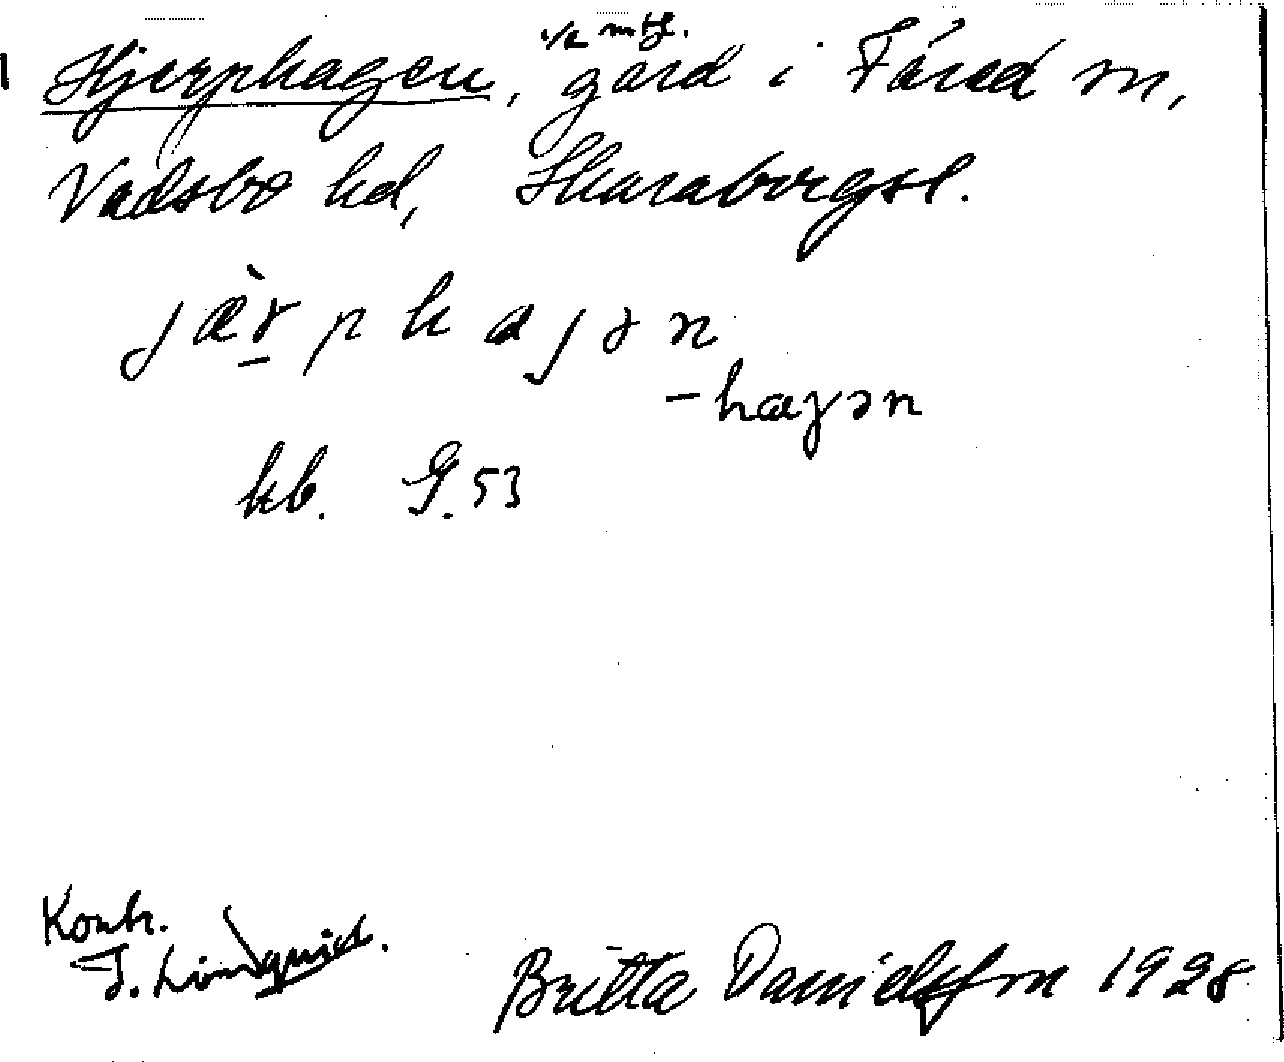 Hjerphagen, 1/2 mtl. gård i Fåred sn,
Vadsbo hd, Skaraborgsl.
jæ̀r̲phajən
-hagən
kb. G. 53
Kontr.
I. Lindquist.
Britta Danielsson 1928